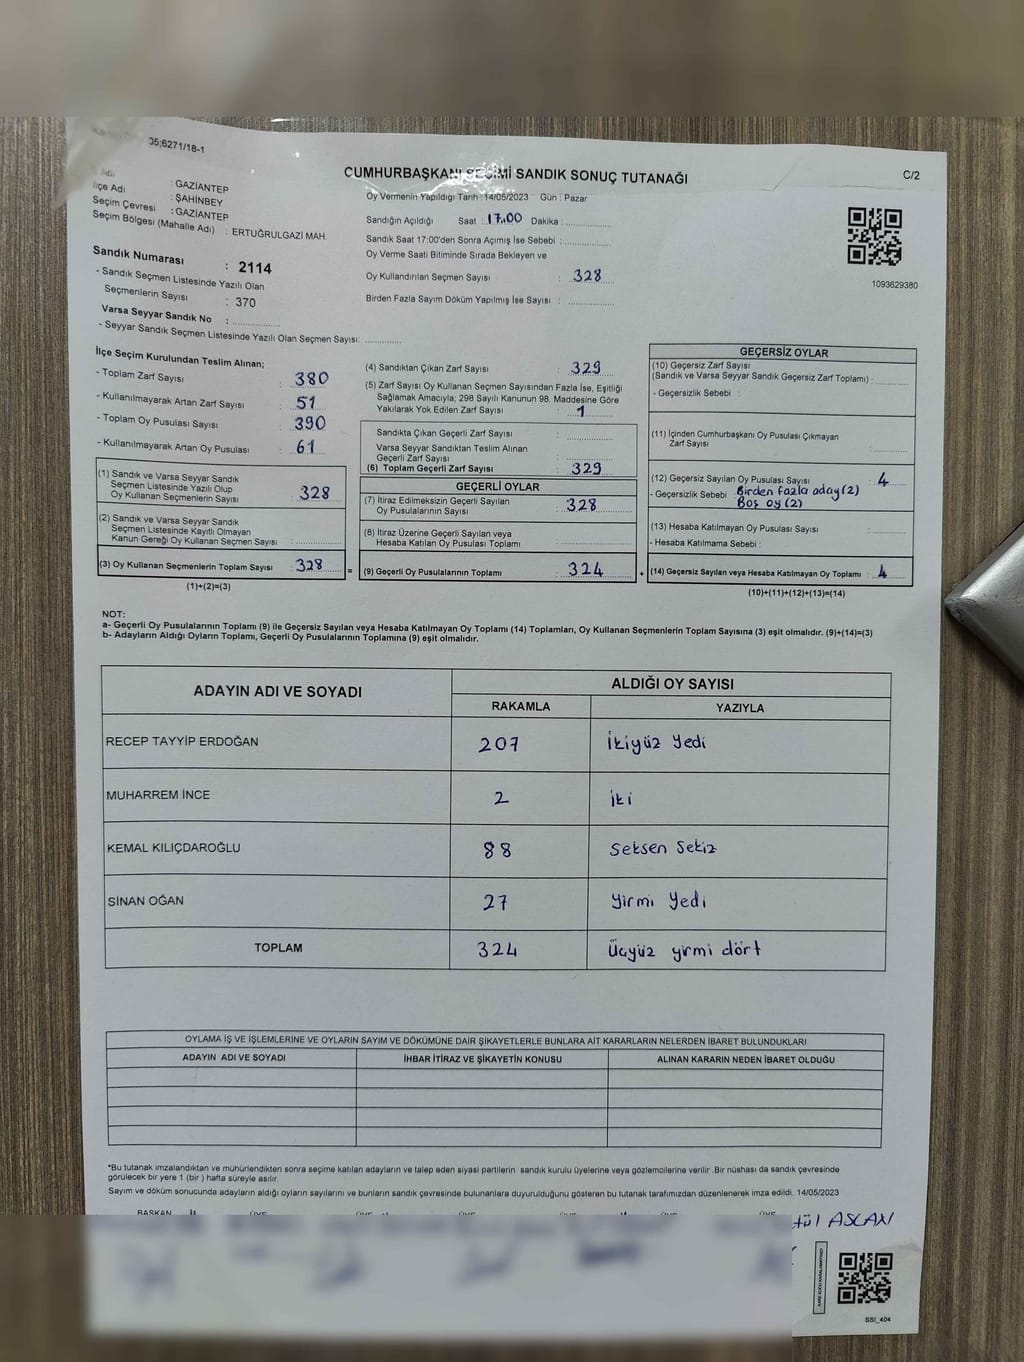 05;6271/18-1
CUMHURBAŞKANI SEÇİMİ SANDIK SONUÇ TUTANAĞI
C/2
Adı : GAZİANTEP
İlçe Adı : ŞAHİNBEY
Seçim Çevresi : GAZİANTEP
Seçim Bölgesi (Mahalle Adı) : ERTUĞRULGAZİ MAH.
Oy Vermenin Yapıldığı Tarih : 14/05/2023 Gün : Pazar
Sandığın Açıldığı Saat : 17.00 Dakika :
Sandık Saat 17:00'den Sonra Açımış İse Sebebi :
Oy Verme Saati Bitiminde Sırada Bekleyen ve
Oy Kullandırılan Seçmen Sayısı : 328
Birden Fazla Sayım Döküm Yapılmış İse Sayısı :
1093629380
Sandık Numarası : 2114
- Sandık Seçmen Listesinde Yazılı Olan
Seçmenlerin Sayısı : 370
Varsa Seyyar Sandık No :
- Seyyar Sandık Seçmen Listesinde Yazılı Olan Seçmen Sayısı:
İlçe Seçim Kurulundan Teslim Alınan;
- Toplam Zarf Sayısı : 380
- Kullanılmayarak Artan Zarf Sayısı : 51
- Toplam Oy Pusulası Sayısı : 390
- Kullanılmayarak Artan Oy Pusulası : 61
(1) Sandık ve Varsa Seyyar Sandık
Seçmen Listesinde Yazılı Olup
Oy Kullanan Seçmenlerin Sayısı : 328
(2) Sandık ve Varsa Seyyar Sandık
Seçmen Listesinde Kayıtlı Olmayan
Kanun Gereği Oy Kullanan Seçmen Sayısı :
(3) Oy Kullanan Seçmenlerin Toplam Sayısı : 328 =
(1)+(2)=(3)
(4) Sandıktan Çıkan Zarf Sayısı : 329
(5) Zarf Sayısı Oy Kullanan Seçmen Sayısından Fazla İse, Eşitliği
Sağlamak Amacıyla; 298 Sayılı Kanunun 98. Maddesine Göre
Yakılarak Yok Edilen Zarf Sayısı : 1
Sandıkta Çıkan Geçerli Zarf Sayısı :
Varsa Seyyar Sandıktan Teslim Alınan
Geçerli Zarf Sayısı :
(6) Toplam Geçerli Zarf Sayısı : 329
GEÇERLİ OYLAR
(7) İtiraz Edilmeksizin Geçerli Sayılan
Oy Pusulalarının Sayısı : 328
(8) İtiraz Üzerine Geçerli Sayılan veya
Hesaba Katılan Oy Pusulası Toplamı :
(9) Geçerli Oy Pusulalarının Toplamı : 324 +
GEÇERSİZ OYLAR
(10) Geçersiz Zarf Sayısı
(Sandık ve Varsa Seyyar Sandık Geçersiz Zarf Toplamı) :
- Geçersizlik Sebebi :
(11) İçinden Cumhurbaşkanı Oy Pusulası Çıkmayan
Zarf Sayısı :
(12) Geçersiz Sayılan Oy Pusulası Sayısı : 4
- Geçersizlik Sebebi : Birden fazla aday (2)
Boş oy (2)
(13) Hesaba Katılmayan Oy Pusulası Sayısı :
- Hesaba Katılmama Sebebi :
(14) Geçersiz Sayılan veya Hesaba Katılmayan Oy Toplamı : 4
(10)+(11)+(12)+(13)=(14)
NOT:
a- Geçerli Oy Pusulalarının Toplamı (9) ile Geçersiz Sayılan veya Hesaba Katılmayan Oy Toplamı (14) Toplamları, Oy Kullanan Seçmenlerin Toplam Sayısına (3) eşit olmalıdır. (9)+(14)=(3)
b- Adayların Aldığı Oyların Toplamı, Geçerli Oy Pusulalarının Toplamına (9) eşit olmalıdır.
ADAYIN ADI VE SOYADI
ALDIĞI OY SAYISI
RAKAMLA YAZIYLA
RECEP TAYYİP ERDOĞAN 207 İkiyüz yedi
MUHARREM İNCE 2 iki
KEMAL KILIÇDAROĞLU 88 Seksen Sekiz
SİNAN OĞAN 27 Yirmi Yedi
TOPLAM 324 Üçyüz yirmi dört
OYLAMA İŞ VE İŞLEMLERİNE VE OYLARIN SAYIM VE DÖKÜMÜNE DAİR ŞİKAYETLERLE BUNLARA AİT KARARLARIN NELERDEN İBARET BULUNDUKLARI
ADAYIN ADI VE SOYADI İHBAR İTİRAZ VE ŞİKAYETİN KONUSU ALINAN KARARIN NEDEN İBARET OLDUĞU
*Bu tutanak imzalandıktan ve mühürlendikten sonra seçime katılan adayların ve talep eden siyasi partilerin sandık kurulu üyelerine veya gözlemcilerine verilir .Bir nüshası da sandık çevresinde
görülecek bir yere 1 (bir ) hafta süreyle asılır.
Sayım ve döküm sonucunda adayların aldığı oyların sayılarını ve bunların sandık çevresinde bulunanlara duyurulduğunu gösteren bu tutanak tarafımızdan düzenlenerek imza edildi. 14/05/2023
BAŞKAN ÜYE ÜYE ÜYE ÜYE ÜYE ÜYE
ASLAN
SSI_404